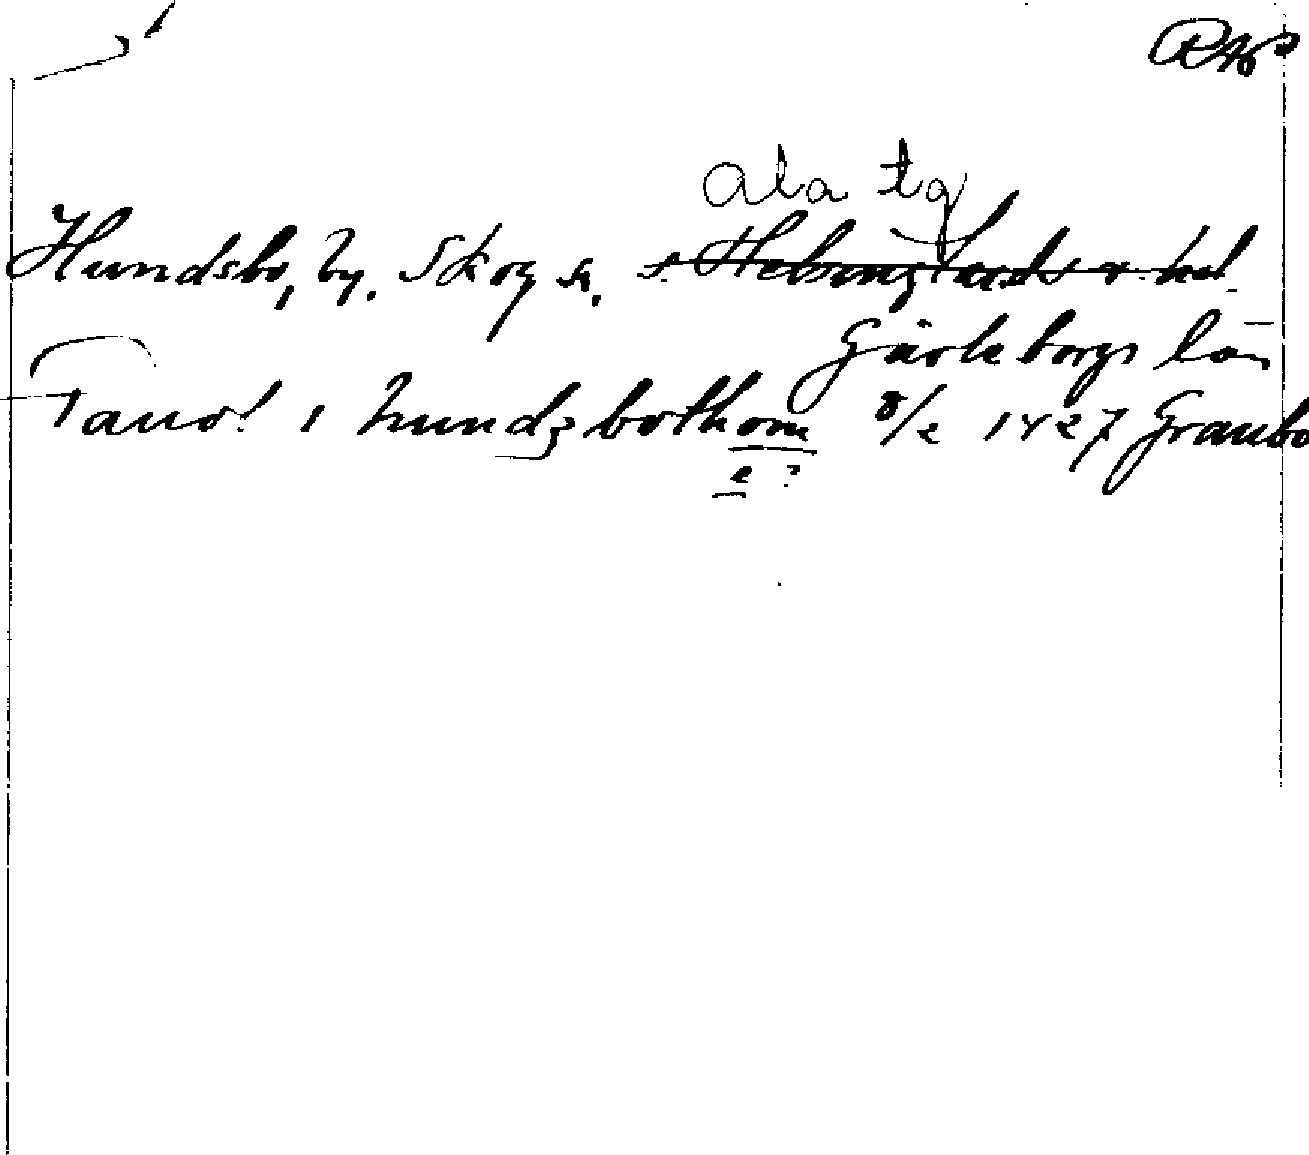 Ala tg
Hundsbo, by. Skog sn. s. Helsinglands v. hd.
Gävleborgs län
i hundzbothom 8/2 1427 Graubo
e ?